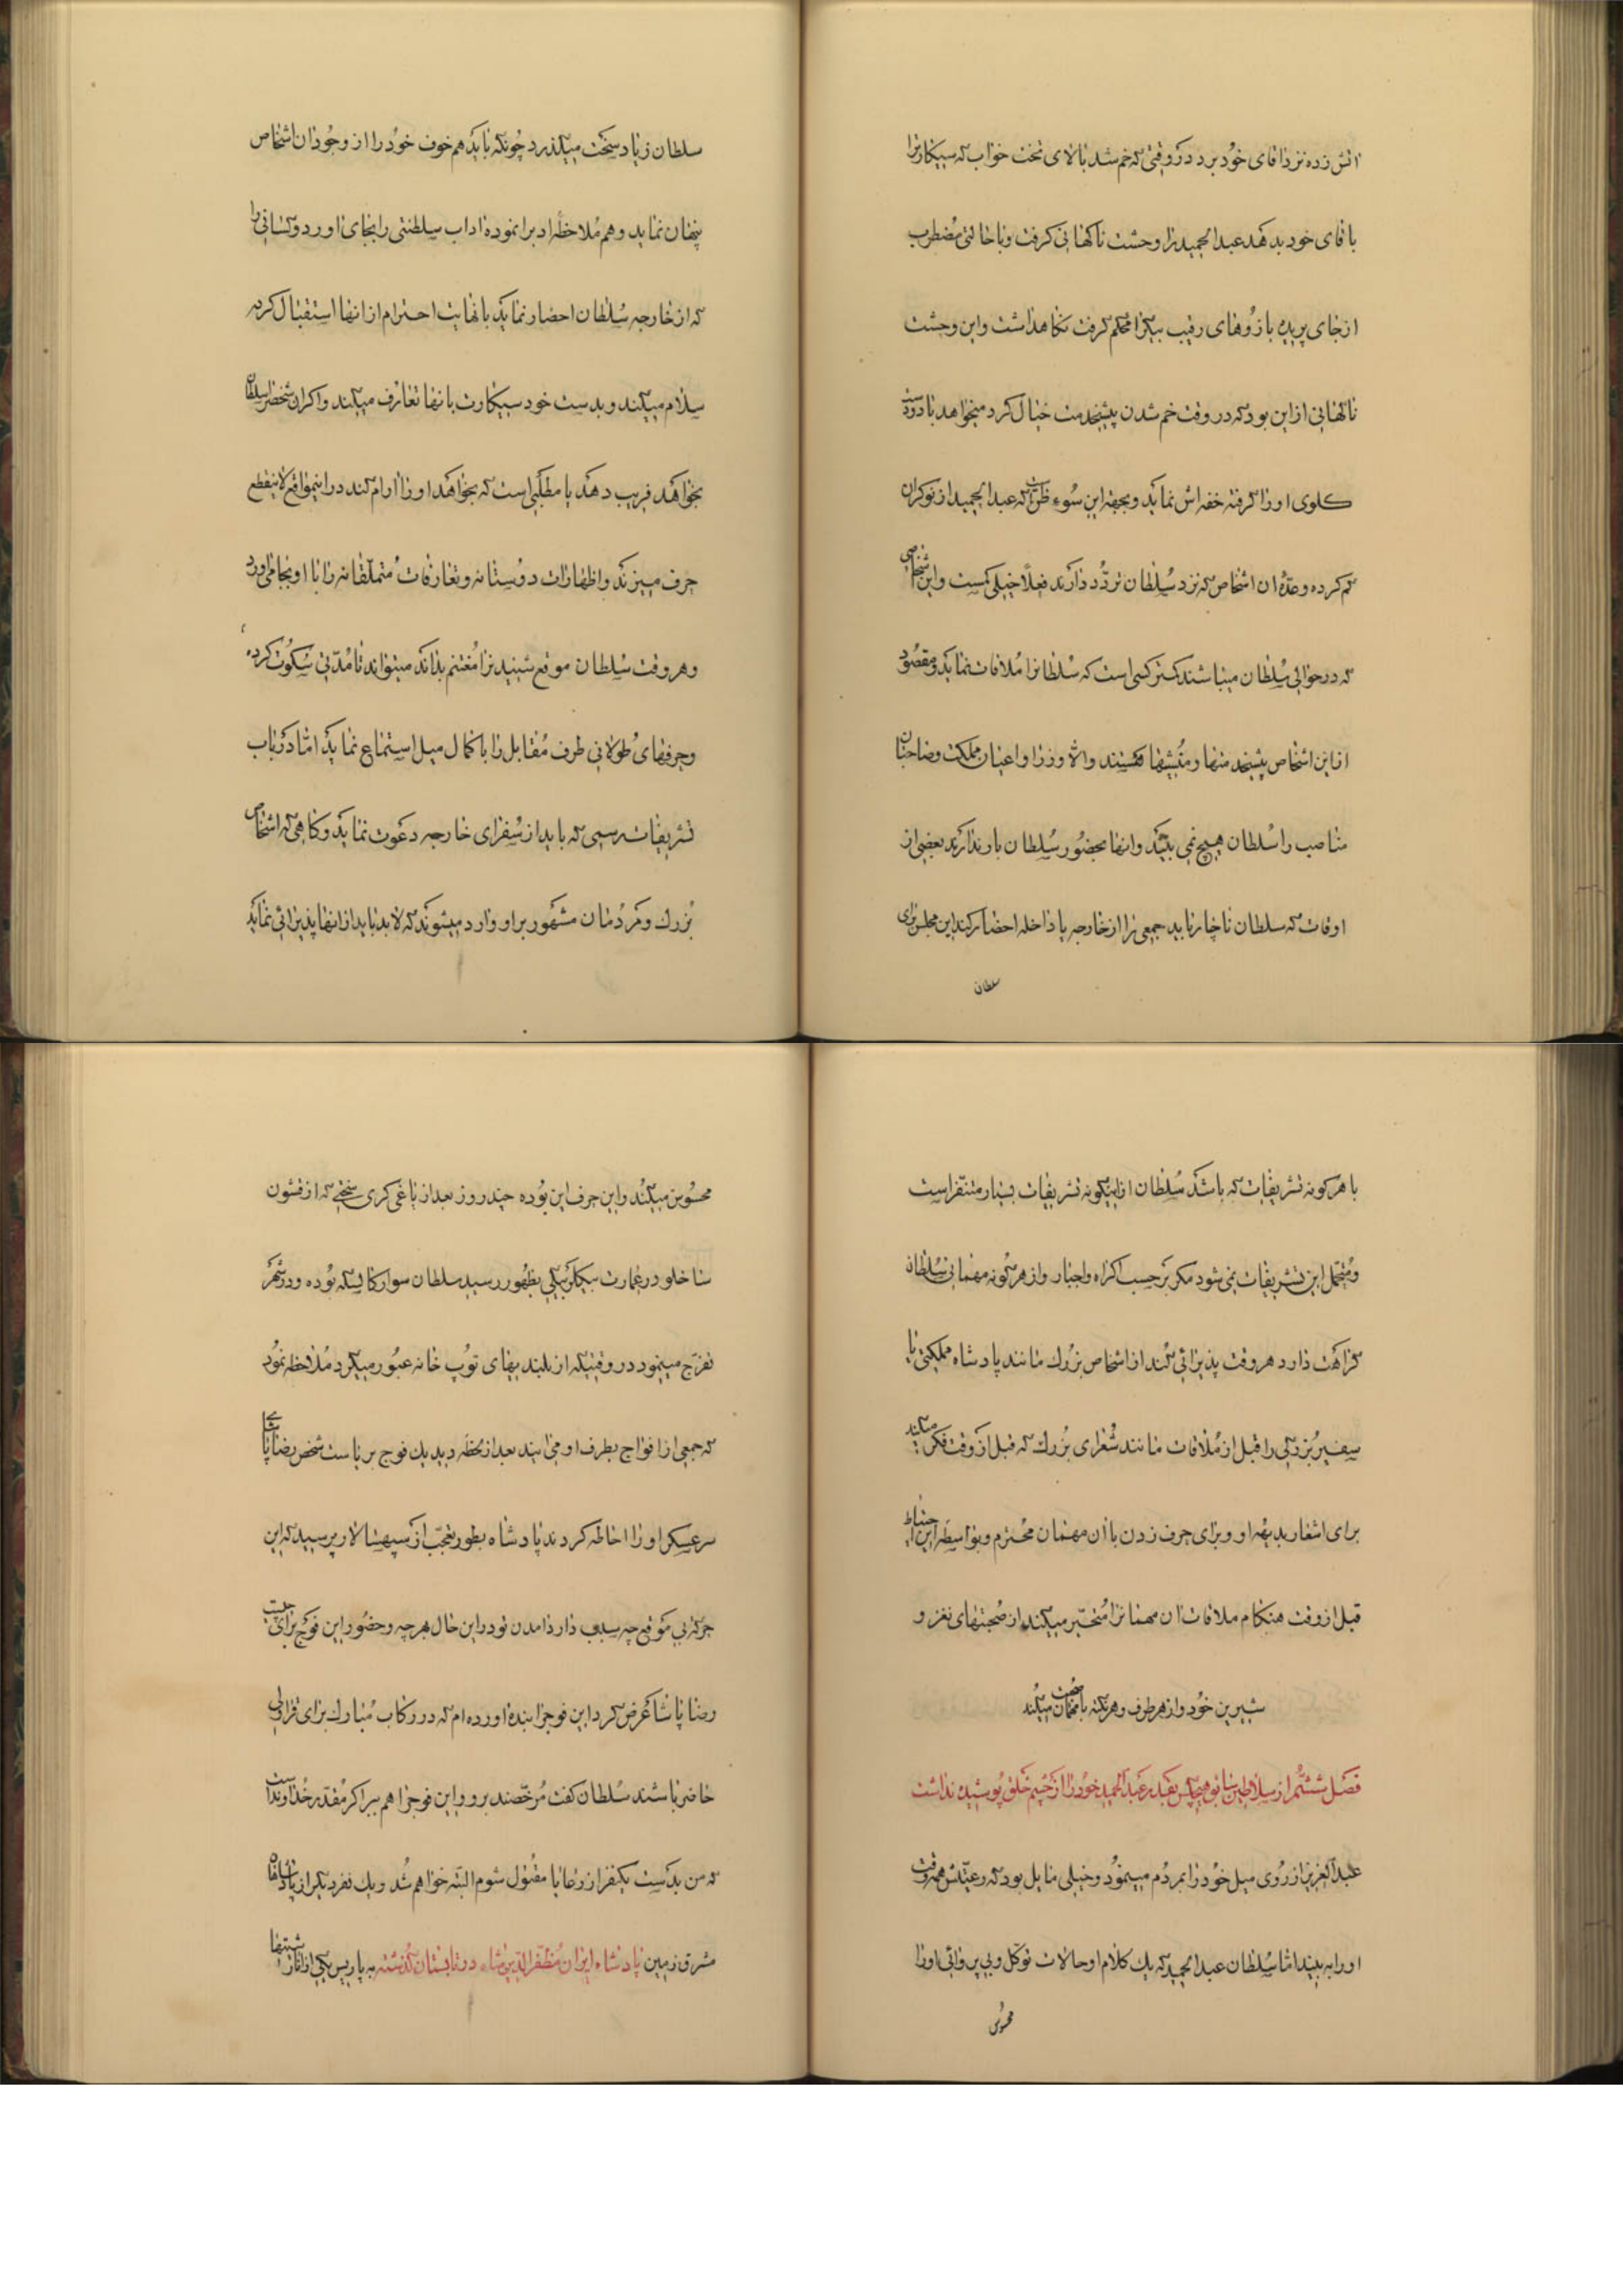 اتش زده نزد اقای خود برد در وقتی که خم شد بالای تخت خواب که سیکار را
باقای خود بدهد عبدالحمید را وحشت ناکهانی کرفت و با حالتی مضطرب
از جای پریده بازوهای رقیب بیک را محکم کرفت نکاهداشت و این وحشت
ناکهانی از این بود که در وقت خم شدن پیشخدمت خیال کرد میخواهد با دو دست
کلوی او را کرفته خفه اش نماید و بجهة این سوء ظن است که عبدالحمید از نوکران
کم کرده و عدّه ان اشخاص که نزد سلطان تردّد دارند فعلاً خیلی کمست و این اشخاصی
که در حوالی سلطان میباشند کمتر کسی است که سلطانرا ملاقات نماید و مقصود
از این اشخاص پیشخدمتها و منشیها هستند والّا وزرا و اعیان مملکت و صاحبان
مناصب را سلطان هیچ نمی بیند و انها بحضور سلطان بار ندارند بعضی از
اوقات که سلطان ناچار باید جمعی را از خارجه یا داخله احضار کند این مجلس برای
سلطان
سلطان زیاد سخت میکذرد چونکه باید هم خوف خود را از وجود ان اشخاص
پنهان نماید و هم ملاحظۀ ادب را نموده اداب سلطنتی را بجای اورد و کسانی را
که از خارجه سلطان احضار نماید با نهایت احترام از انها استقبال کرده
سلام میکند و بدست خود سیکارت بانها تعارف میکند و اکر ان شخص را سلطان
بخواهد فریب دهد یا مطلبی است که بخواهد او را ارام کند در اینمواقع لاینقطع
حرف میزند و اظهارات دوستانه و تعارفات متملّقانه را با او بجا می اورد
و هر وقت سلطان موقع شنیدن را مغتنم بداند میتواند تا مدّتی سکوت کرده
و حرفهای طولانی طرف مقابل را با کمال میل استماع نماید امّا در باب
تشریفات رسمی که باید از سفرای خارجه دعوت نماید و کاهی که اشخاص
بزرك و مردمان مشهور بر او وارد میشوند که لابد باید از انها پذیرائی نماید
با هر کونه تشریفات که باشد سلطان از اینکونه تشریفات بسیار متنفّر است
و متحمل این تشریفات نمی شود مکر بر حسب اکراه و اجبار و از هر کونه مهمانی سلطان
کراهت دارد هر وقت پذیرائی کند از اشخاص بزرك مانند پادشاه مملکتی یا
سفیر بزرکی را قبل از ملاقات مانند شعرای بزرك که قبل از وقت فکر میکنند
برای اشعار بدیهه او و برای حرف زدن با ان مهمان محترم و بواسطۀ این احتیاط
قبل از وقت هنکام ملاقات ان مهمانرا متحیّر میکند از صحبتهای نغز و
شیرین خود و از هر طرف و هر نکته با مهمان صحبت میکند
فصل ششم از سلاطین سابق هیچکس بقدر عبدالحمید خود را از چشم خلق پوشیده نداشت
عبدالعزیز از روی میل خود را بمردم مینمود و خیلی مایل بود که رعیّتش همه وقت
او را به بیند امّا سلطان عبدالحمید که یك کلام او حالات توکّل و بی پروائی او را
محسوس
محسوس میکند و این حرف این بوده چند روز بعد از یاغی کری سختی که از قشون
ساخلو در عمارت بیکلر بیکی بظهور رسید سلطان سوار کالسکه بوده و در شهر
تفرّج مینمود در وقتیکه از بلندیهای توپ خانه عبور میکرد ملاحظه نمود
که جمعی از افواج بطرف او می ایند بعد از لحظه دید یك فوج بریاست شخص رضا پاشای
سرعسکر او را احاطه کردند پادشاه بطور تعجّب از سپهسالار پرسید که این
حرکت بی موقع چه سبب دارد امدن تو در این حال بهر چه و حضور این فوج برای چیست
رضا پاشا عرض کرد این فوجرا بنده اورده ام که در رکاب مبارك برای قراولی
حاضر باشند سلطان کفت مرخّصند برو و این فوجرا هم ببر اکر مقدّر خداوند است
که من بدست یکنفر از رعایا مقتول شوم البتّه خواهم شد و یك نفر دیکر از پادشاهان
مشرق زمین پادشاه ایران مظفّر الدین شاه در تابستان کذشته به پاریس یکی از انارشیستها